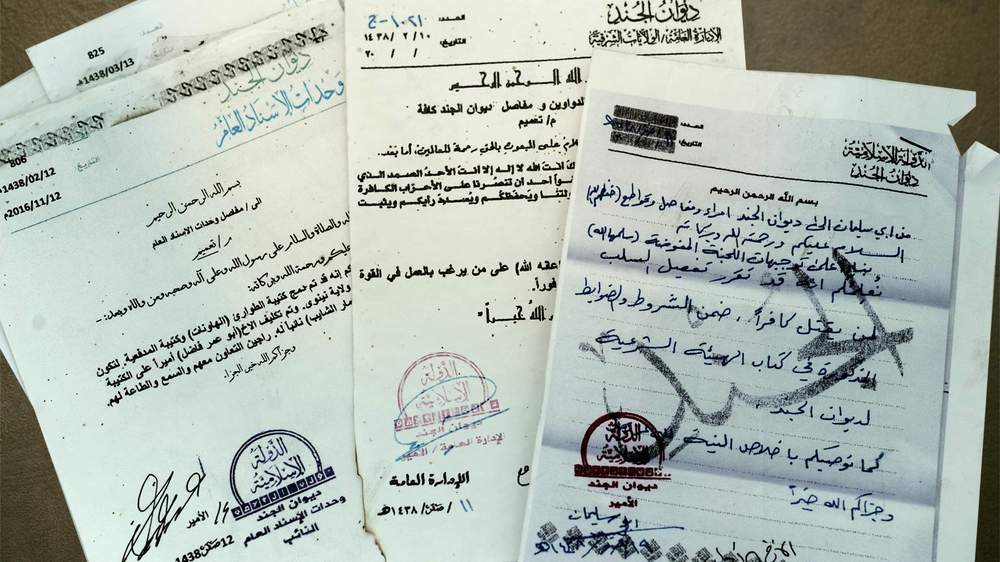 825
1438/03/13هـ
ديوان الجند
وحدات الإسناد العام
806
1438/02/12
التاريخ
2016/11/12م
بسم الله الرحمن الرحيم
الى / مفاصل وحدات الاسناد العام
والصلاة والسلام على رسول الله وعلى آله وصحبه ومن والاه وبعد:-
عليكم ورحمة الله وبركاته:
انه قد تم دمج كتيبة الطوارئ (الهاونات) وكتيبة المدفعية. لتكون
ولاية نينوى. وتم تكليف الاخ (أبو عمر فاضل) أميراً على الكتيبة
نقيباً له. راجين التعاون معهم والسمع والطاعة لهم.
وجزاكم الله خير الجزاء.
الدولة
الإسلامية
ديوان الجند
وحدات الإسناد العام
النائب
الأمير
12 صفر 1438
ديوان الجند
الإدارة العامة/الولايات الشرقية
العدد: ١٠٢١-ج
التاريخ: ١٤٣٨/٢/١٠
٢٠ / /
الله الرحمن الرحيم
الدواوين و مفاصل ديوان الجند كافة
م/ تعميم
على المبعوث بالحق رحمة للعالمين، أما بعد.
أنت الله لا إله إلا أنت الأحد الصمد الذي
أحد أن تنصرنا على الأحزاب الكافرة
ويحفظكم ويسدد رأيكم ويثبت
الله) على من يرغب بالعمل في القوة
فوراً.
الله خيراً
الدولة
الإسلامية
ديوان الجند
الإدارة العامة
الإدارة العامة
١١ / صفر / ١٤٣٨هـ
الدولة الإسلامية
ديوان الجند
العدد:
التاريخ:
بسم الله الرحمن الرحيم
من ابي سلمان الى ديوان الجند امراء ومفاصل وقواطع (حفظهم الله)
السلام عليكم ورحمة الله وبركاته
بناءً على توجيهات اللجنة المفوضة (سلمها الله)
نُعلمكم انه قد تقرر تفعيل السلب
لمن يقتل كافراً. ضمن الشروط والضوابط
المذكورة في كتاب الهيئة الشرعية
لديوان الجند.
كما نوصيكم باخلاص النية
وجزاكم الله خيراً
الدولة
الإسلامية
ديوان الجند
الأمير